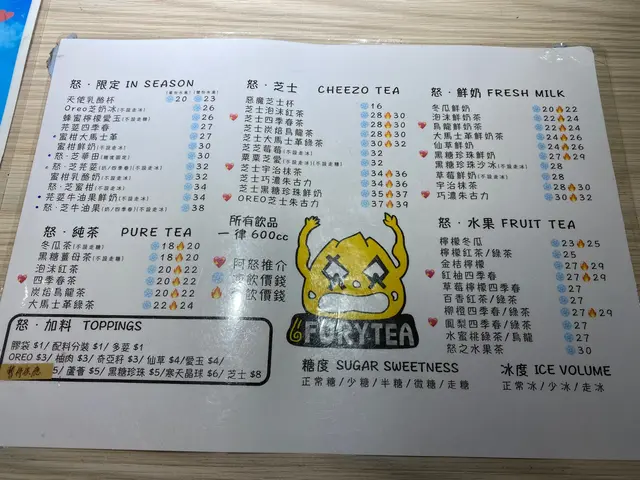 怒·限定 IN SEASON
天使乳酪杯 20 23
Oreo芝奶冰(不設走冰) 26
蜂蜜檸檬愛玉(不設走糖) 26
芫荽四季春 27
蜜柑大馬士革 27
蜜柑鮮奶(不設走冰) 30
怒·芝華田 30
怒·芝芫荽(不設走冰) 32
蜜柑乳酪奶(不設走冰) 32
怒·芝蜜柑(不設走冰) 34
芫荽牛油果鮮奶(不設走冰) 34
怒·芝牛油果(不設走冰) 38
怒·純茶 PURE TEA
冬瓜茶(不設走糖) 18 20
黑糖薑母茶(不設走糖) 18 20
泡沫紅茶 20 22
四季春茶 20 22
炭焙烏龍茶 20 22
大馬士革綠茶 22 24
怒·加料 TOPPINGS
膠袋 $1/ 配料分裝 $1/ 多荽 $1
OREO $3/ 柚肉 $3/ 奇亞籽 $3/ 仙草 $4/ 愛玉 $4/
$5/ 蘆薈 $5/ 黑糖珍珠 $5/ 寒天晶球 $6/ 芝士 $8
怒·芝士 CHEEZO TEA
惡魔芝士杯 16
芝士泡沫紅茶 28 30
芝士四季春茶 28 30
芝士炭焙烏龍茶 28 30
芝士大馬士革綠茶 30 32
芝芝莓莓(不設走冰) 30
粟粟芝愛(不設走冰) 32
芝士宇治抹茶 34 36
芝士巧濃朱古力 34 36
芝士黑糖珍珠鮮奶 35 37
OREO芝士朱古力 37 39
所有飲品
一律 600cc
阿怒推介
飲價錢
飲價錢
FURYTEA
怒·鮮奶 FRESH MILK
冬瓜鮮奶 20 22
泡沫鮮奶茶 22 24
烏龍鮮奶茶 22 24
大馬士革鮮奶茶 24 26
仙草鮮奶 24 26
黑糖珍珠鮮奶 27 29
黑糖珍珠沙冰(不設走冰) 28
草莓鮮奶(不設走冰) 28
宇治抹茶 28 30
巧濃朱古力 30 32
怒·水果 FRUIT TEA
檸檬冬瓜 23 25
檸檬紅茶/綠茶 25
金桔檸檬 27 29
紅柚四季春 27 29
草莓檸檬四季春 27
百香紅茶/綠茶 27
柳橙四季春/綠茶 27 29
鳳梨四季春/綠茶 27
水蜜桃綠茶/烏龍 27
怒之水果茶 30
糖度 SUGAR SWEETNESS
正常糖/少糖/半糖/微糖/走糖
冰度 ICE VOLUME
正常冰/少冰/走冰